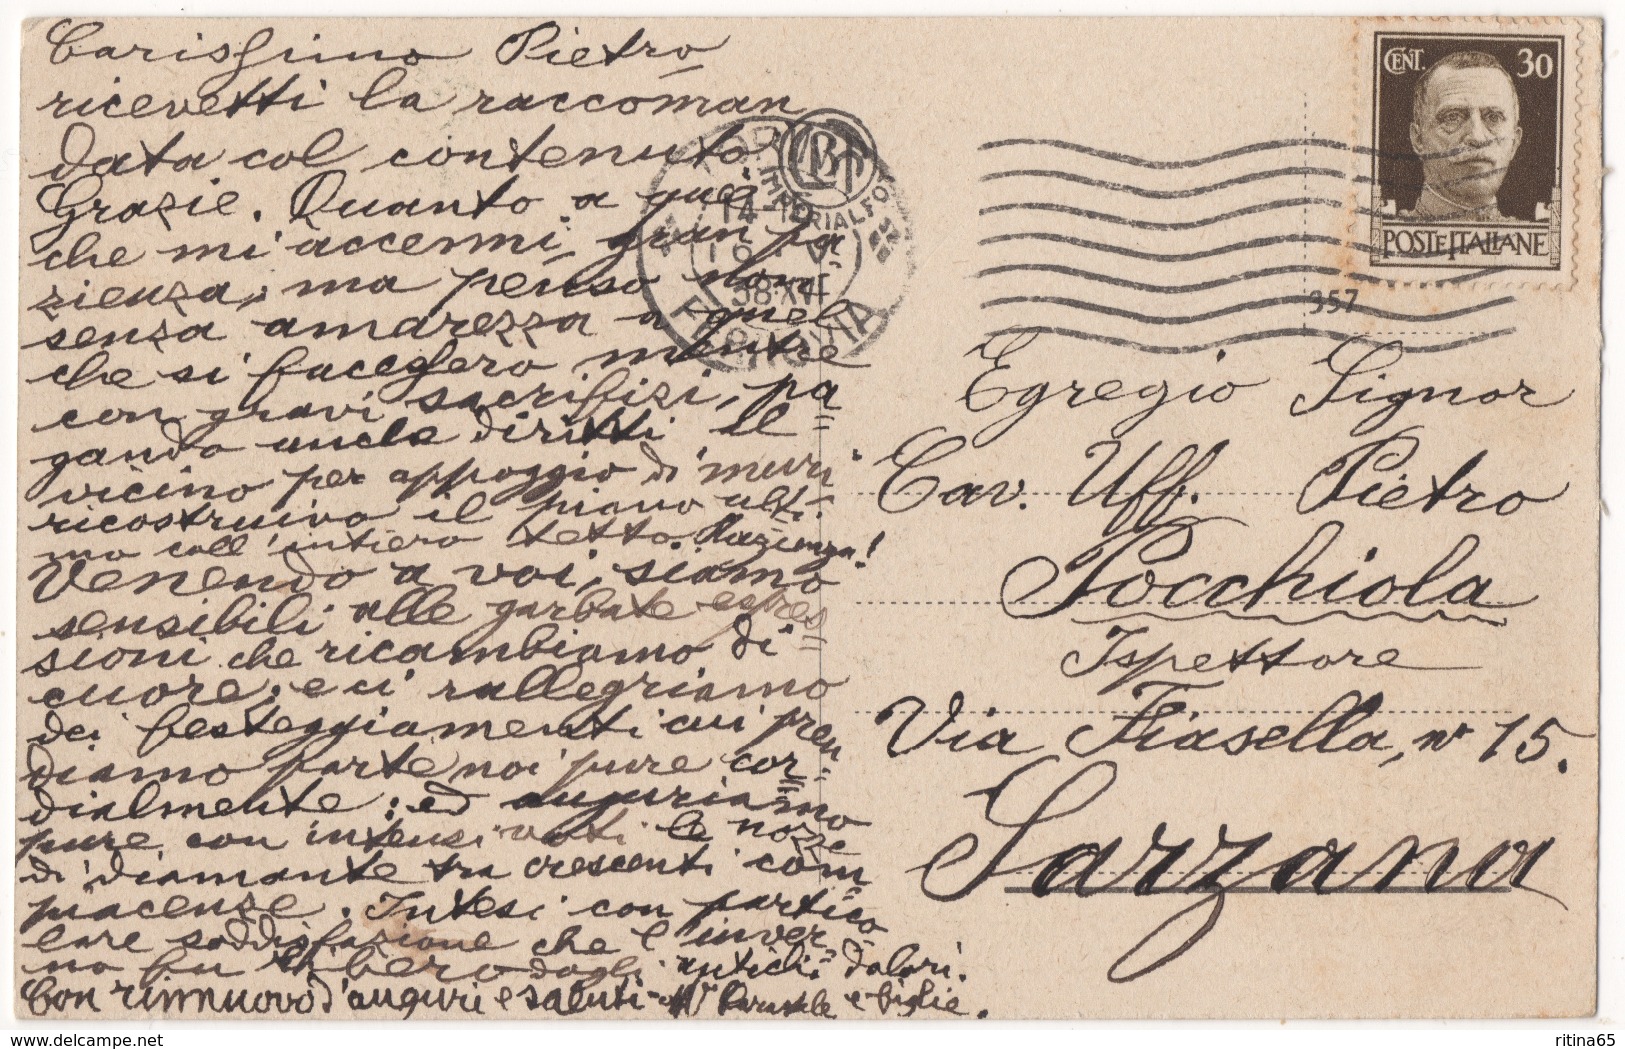 Carissimo Pietro
ricevetti la raccoman
data col contenuto
Grazie. Quanto a quei
che mi accenni, gran pa=
zienza; ma penso non
senza amarezza a quel
che si faceſsero mentre
con gravi sacrifizi, pa=
gando anche diritti al
vicino per appoggio di muri
ricostruivo il piano ulti=
mo coll'intiero tetto. Pazienza!
Venendo a voi, siamo
sensibili alle garbate espres=
sioni che ricambiamo di
cuore; e ci rallegriamo
dei festeggiamenti cui pren=
diamo parte noi pure cor=
dialmente: ed auguriamo
pure con intensi voti le nozze
di diamante tra crescenti com
piacenze. Intesi con partico=
lare soddisfazione che l'inver=
no fu libero dagli antichi dolori.
Con rinnuovo d'auguri e saluti e figlie.
IMPERIALFO
14-
38·XVI
CENT. 30
POSTE ITALIANE
357
Egregio Signor
Cav. Uff. Pietro
Pocchiola
Ispettore
Via Fiasella, n° 15.
Sarzana
www.delcampe.net
ritina65